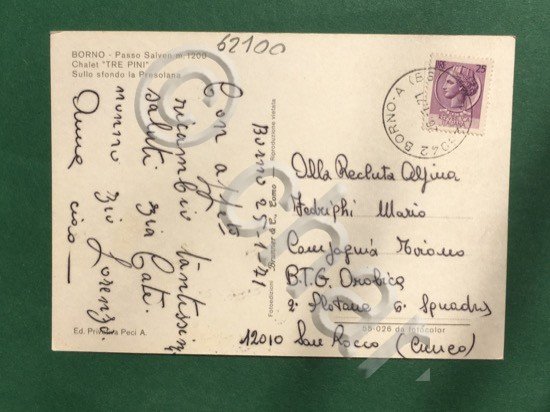 62100
BORNO - Passo Salven m. 1200
Chalet "TRE PINI"
Sullo sfondo la Presolana
Borno 25-1-71
Con affetto
ricambio tantissimi
saluti. zia Cati.
nonno zio Lorenzo.
Anna ciao
Alla Recluta Alpina
Fedrighi Mario
Compagnia
B.T.G. Orobica
2ª 6ª Squadra
12010 San Rocco (Cuneo)
25
BORNO. A (BS)
Fotoedizioni Brunner & C., Como
Riproduzione vietata
65-026 da fotocolor
Ed. Peci A.
Char